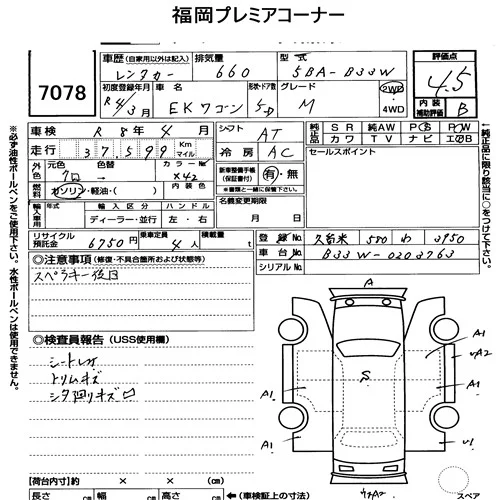 福岡プレミアコーナー
7078
車歴 (自家用以外は記入) レンタカー 排気量 660 型式 5BA-B33W
評価点 4.5
初度登録年月 R4/3月 車名 EKワゴン 形状・ドア数 5D グレード M 2WD 4WD
内装補助評価 B
車検 R 8年 4月 シフト AT
純正品 SR 純AW PS PW
カワ TV ナビ エアB
走行 37,599 Km マイル 冷房 AC
セールスポイント
外色 元色 色替 カラーNo X42
燃料 ガソリン・軽油・( ) 内装色
新車整備手帳(保証書付) 有・無
※書類と一緒に保管下さい。
輸入車用 年式 輸入区分 ハンドル
ディーラー・並行 左・右
名義変更期限 月 日
リサイクル預託金 6750円 乗車定員 4人 積載量 t
登録No. 久留米 580 わ 3950
車台No. B33W-0203763
シリアルNo.
◎注意事項 (修復・不具合箇所および状態等)
スペアキー後日
◎検査員報告 (USS使用欄)
シートレオ
トリムキズ
シタ廻りキズ
A
A1
UA2
S
A1
A1
A1
U1
スペア
【荷台内寸】約 × × ←(車検証上の寸法)
長さ cm 幅 cm 高さ cm
※必ず油性ボールペンをご使用下さい。水性ボールペンは使用できません。
※純正品に限り該当に○をつけて下さい。